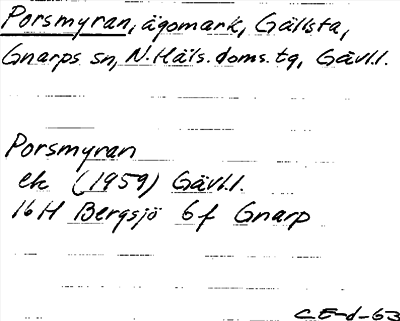 Porsmyran, ägomark, Gällsta,
Gnarps sn, N. Häls. doms. tg, Gävl.l.
Porsmyran
ek (1959) Gävl.l.
16H Bergsjö 6f Gnarp
CE-d-63